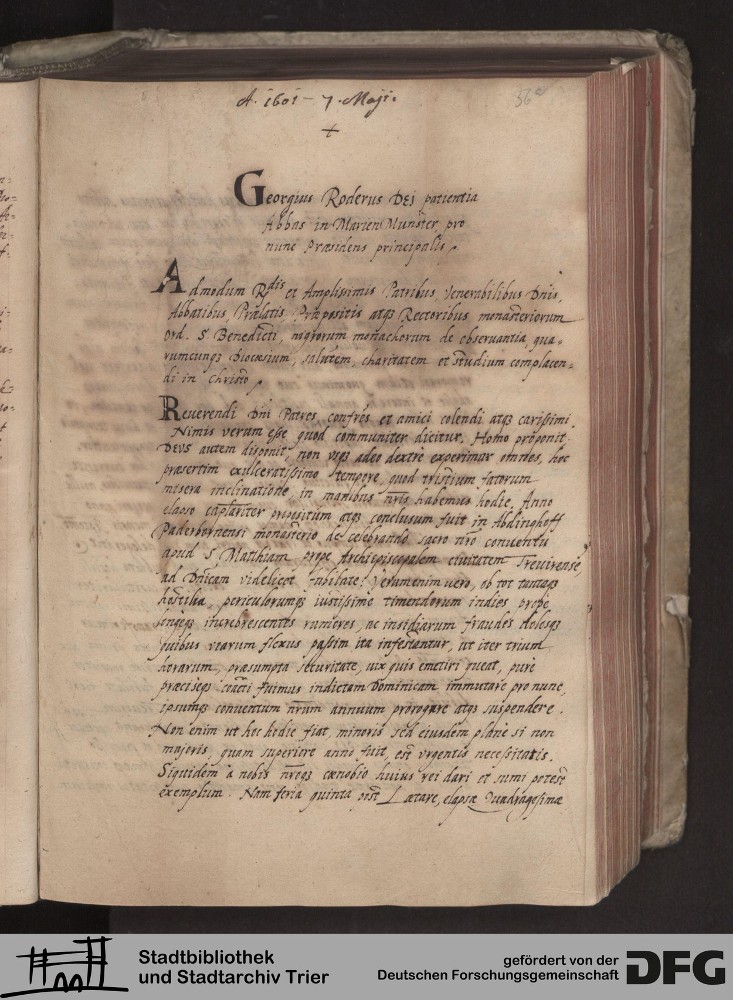 A. 1601 – 7. Maji.
56a
+
Georgius Roderus Dei patientia
Abbas in MarienMunster, pro
nunc Præsidens principalis.
Admodum Rdis et Amplissimis Patribus, Venerabilibus Dnis,
Abbatibus, Prælatis, Præpositis atq3 Rectoribus monasteriorum
Ord. S. Benedicti, nigrorum monachorum de observantia, qua-
rumcunq3 Diocæsium, salutem, charitatem et studium complacen-
di in Christo.
Reverendi Dni Patres, confres et amici colendi atq3 carissimi.
Nimis verum esse quod communiter dicitur, Homo proponit
Deus autem disponit, non usq3 adeo dextrè experimur omnes, hoc
præsertim exulceratissimo tempore, quod tristium fatorum
misera inclinatione in manibus nris habemus hodie. Anno
elapso capitariter propositum atq3 conclusum fuit in Abdinghoff
Paderbornensi monasterio de celebrando sacro nro conventu
apud S. Matthiam prope Archiepiscopalem civitatem Trevirensē,
ad Dnicam videlicet Iubilate. Verumenim vero, ob tot tantaq3
hostilia, periculorumq3 iustissimè timendorum indies propè
longèq3 increbrescentes rumores, ac insidiarum fraudes dolosq3
quibus viarum flexus passim ita infestantur, ut iter trium
horarum, præsumpta securitate, vix quis emetiri queat, purè
præcisèq3 coacti fuimus indictam Dominicam immutare pro nunc,
ipsumq3 conventum nrum annuum prorogare atq3 suspendere.
Non enim ut hoc hodie fiat, minoris sed eiusdem planè si non
majoris, quam superiore anno fuit, est urgentis necessitatis.
Siquidem à nobis nroq3 cænobio huius rei dari et sumi potest
exemplum. Nam feria quinta post Lætare, elapsæ Quadragesimæ
Stadtbibliothek
und Stadtarchiv Trier
gefördert von der
Deutschen Forschungsgemeinschaft
DFG